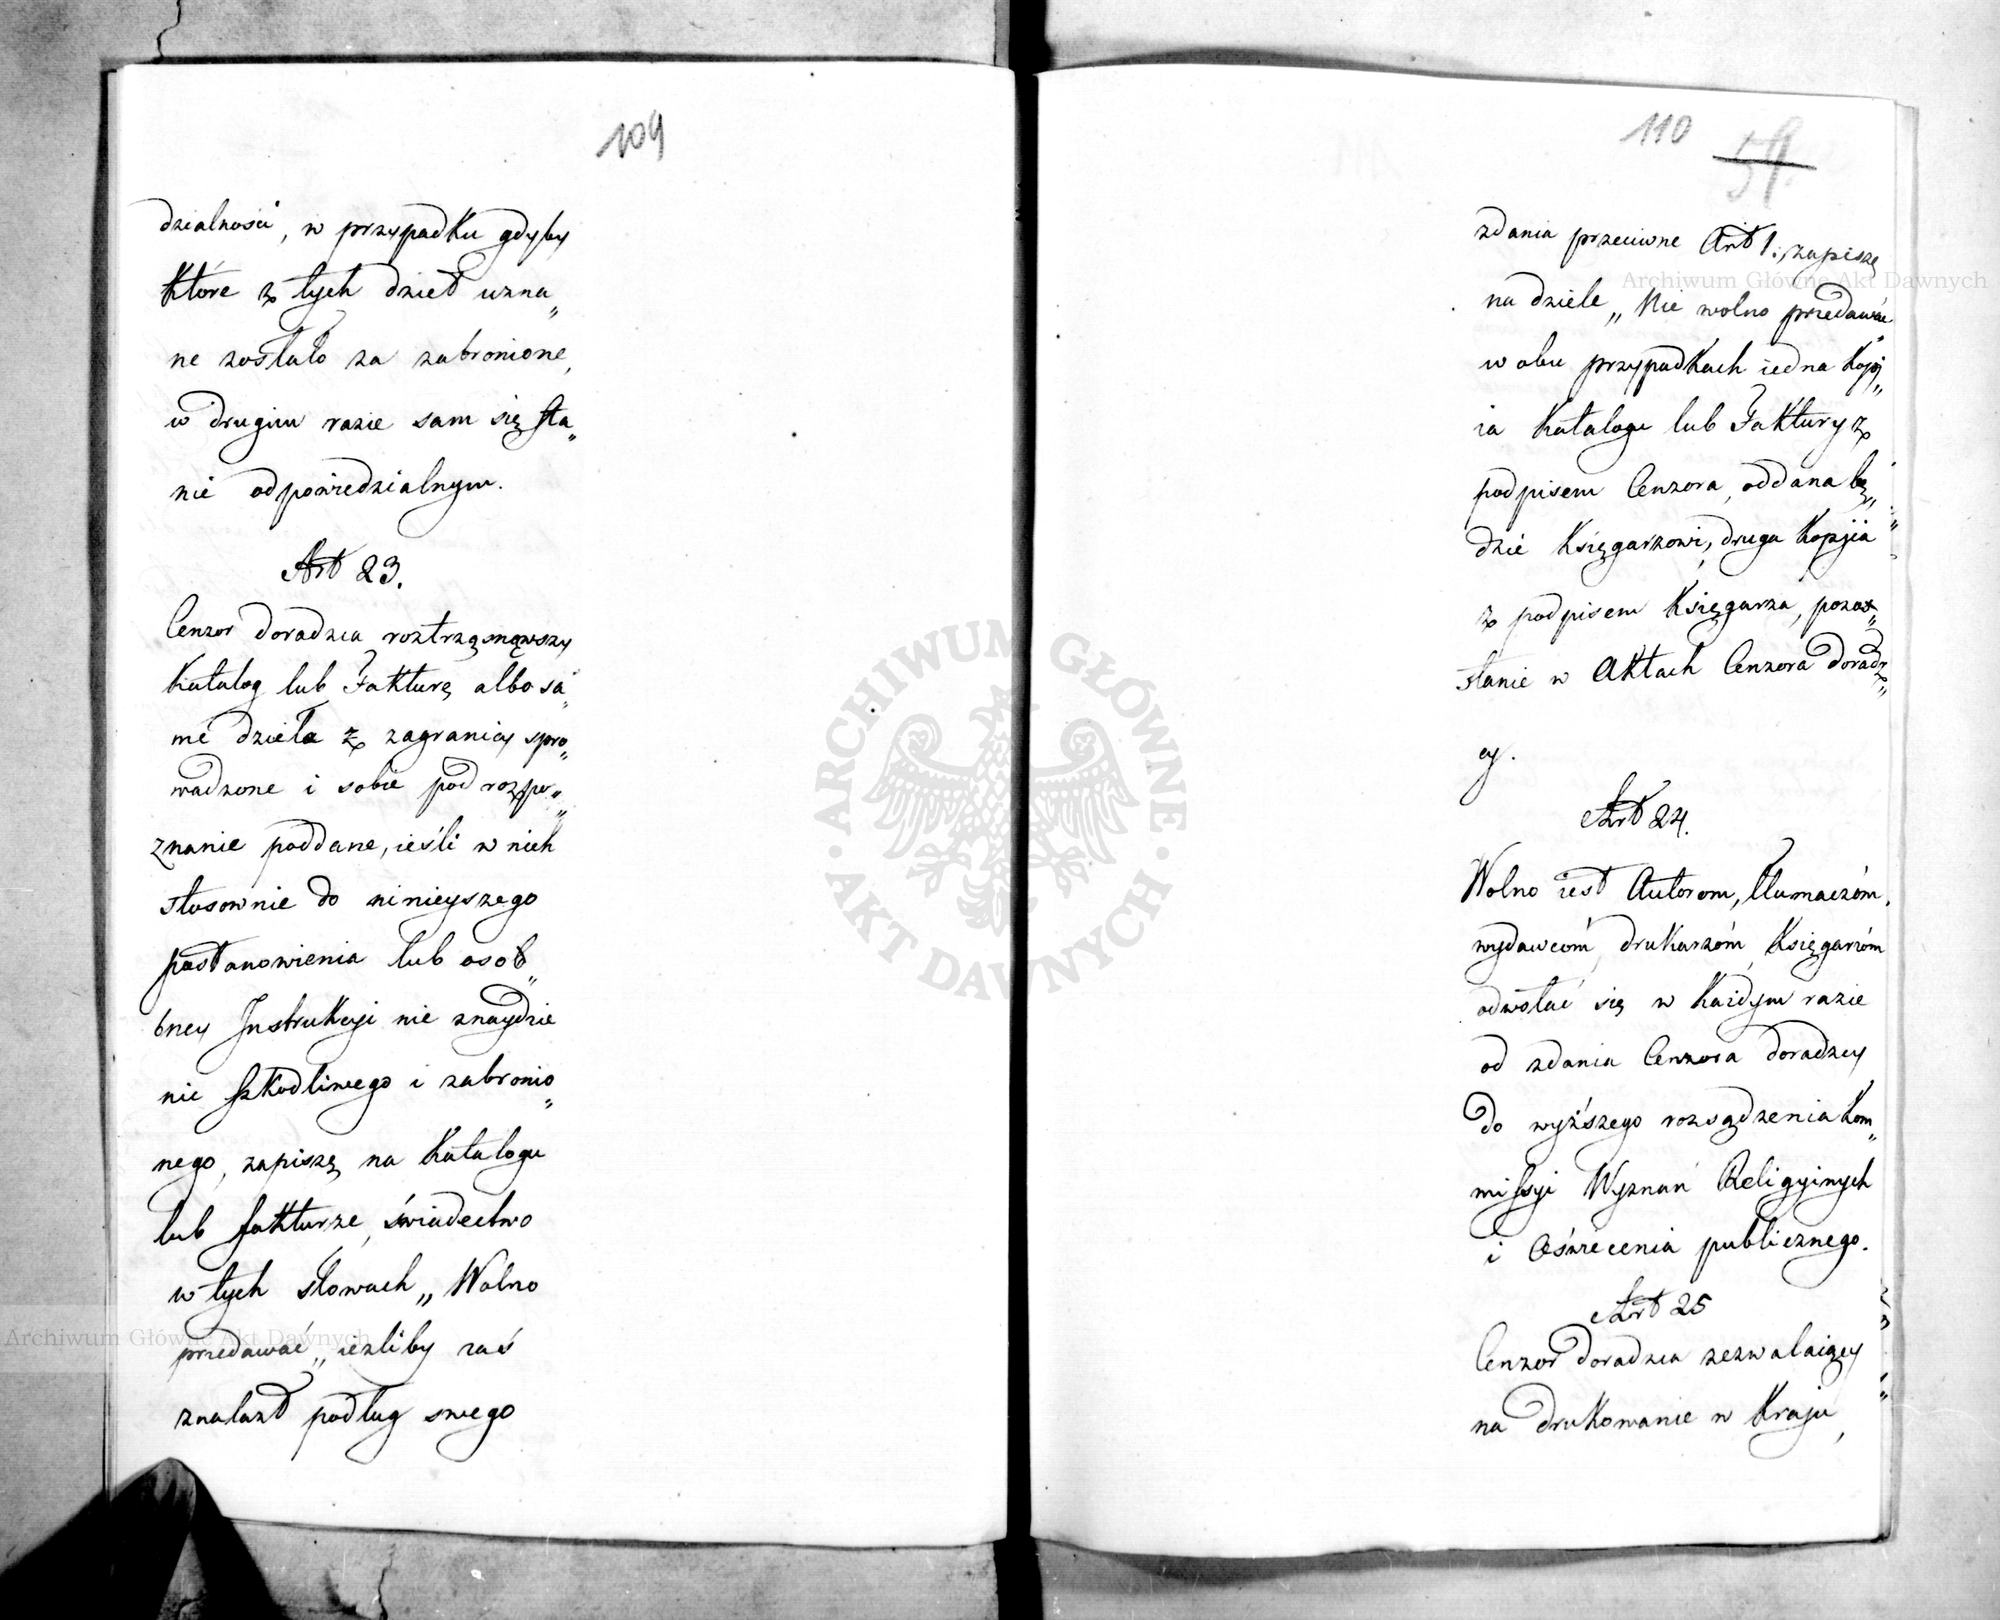 109
dzialności, w przypadku gdyby
które z tych dzieł uzna„
ne zostało za zabronione,
w drugim razie sam się sta„
nie odpowiedzialnym.
Art 23.
Cenzor doradzca roztrząsnąwszy
Katalog lub Fakturę albo sa„
me dzieła z zagranicy spro„
wadzone i sobie pod rozpo„
znanie poddane, ieśli w nich
stosownie do ninieyszego
postanowienia lub osob„
bney Instrukcyi nie znaydzie
nic szkodliwego i zabronio„
nego, zapiszę na Katalogu
lub fakturze, świadectwo
w tych słowach „Wolno
przedawać„ iezliby zaś
znalazł podług swego
110 59.
zdania przeciwne Art 1. zapiszę
na dziele „Nie wolno przedawać„
w obu przypadkach iedna Kopij„
ia Katalogu lub Faktury z
podpisem Cenzora, oddana bę„
dzie Księgarzowi, druga Kopjia
z podpisem Księgarza, pozos„
stanie w Aktach Cenzora doradz„
cy.
Art 24.
Wolno iest Autorom, tłumaczóm,
wydawcóm, drukarzóm, Księgarzóm
odwołać się w każdym razie
od zdania Cenzora doradzcy
do wyższego rozsądzenia Kom„
missyi Wyznań Religyinych
i Oświecenia publicznego.
Art 25
Cenzor doradzca zezwalaiący
na drukowanie w Kraju,
Archiwum Główne Akt Dawnych
Archiwum Główne Akt Dawnych
ARCHIWUM GŁÓWNE · AKT DAWNYCH ·